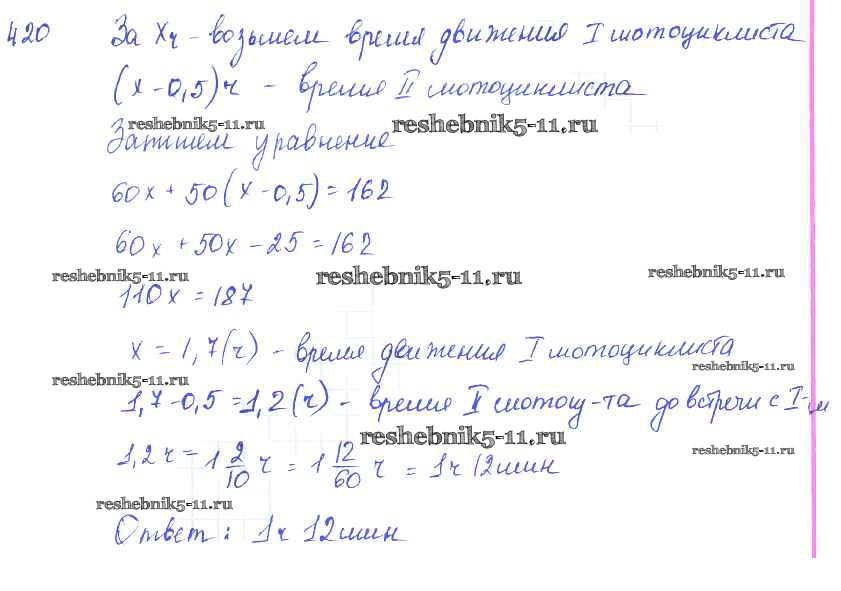 420 За х ч - возьмем время движения I мотоциклиста
(х-0,5)ч - время II мотоциклиста
reshebnik5-11.ru reshebnik5-11.ru
Запишем уравнение
60х + 50(х-0,5)=162
60х +50х -25 =162
reshebnik5-11.ru reshebnik5-11.ru reshebnik5-11.ru
110х =187
х =1,7(ч) - время движения I мотоциклиста
reshebnik5-11.ru
reshebnik5-11.ru
1,7-0,5 =1,2(ч) - время II мотоц-та до встречи с I-м
reshebnik5-11.ru
1,2 ч = 1 2/10 ч = 1 12/60 ч = 1ч 12мин
reshebnik5-11.ru
reshebnik5-11.ru
Ответ: 1ч 12мин